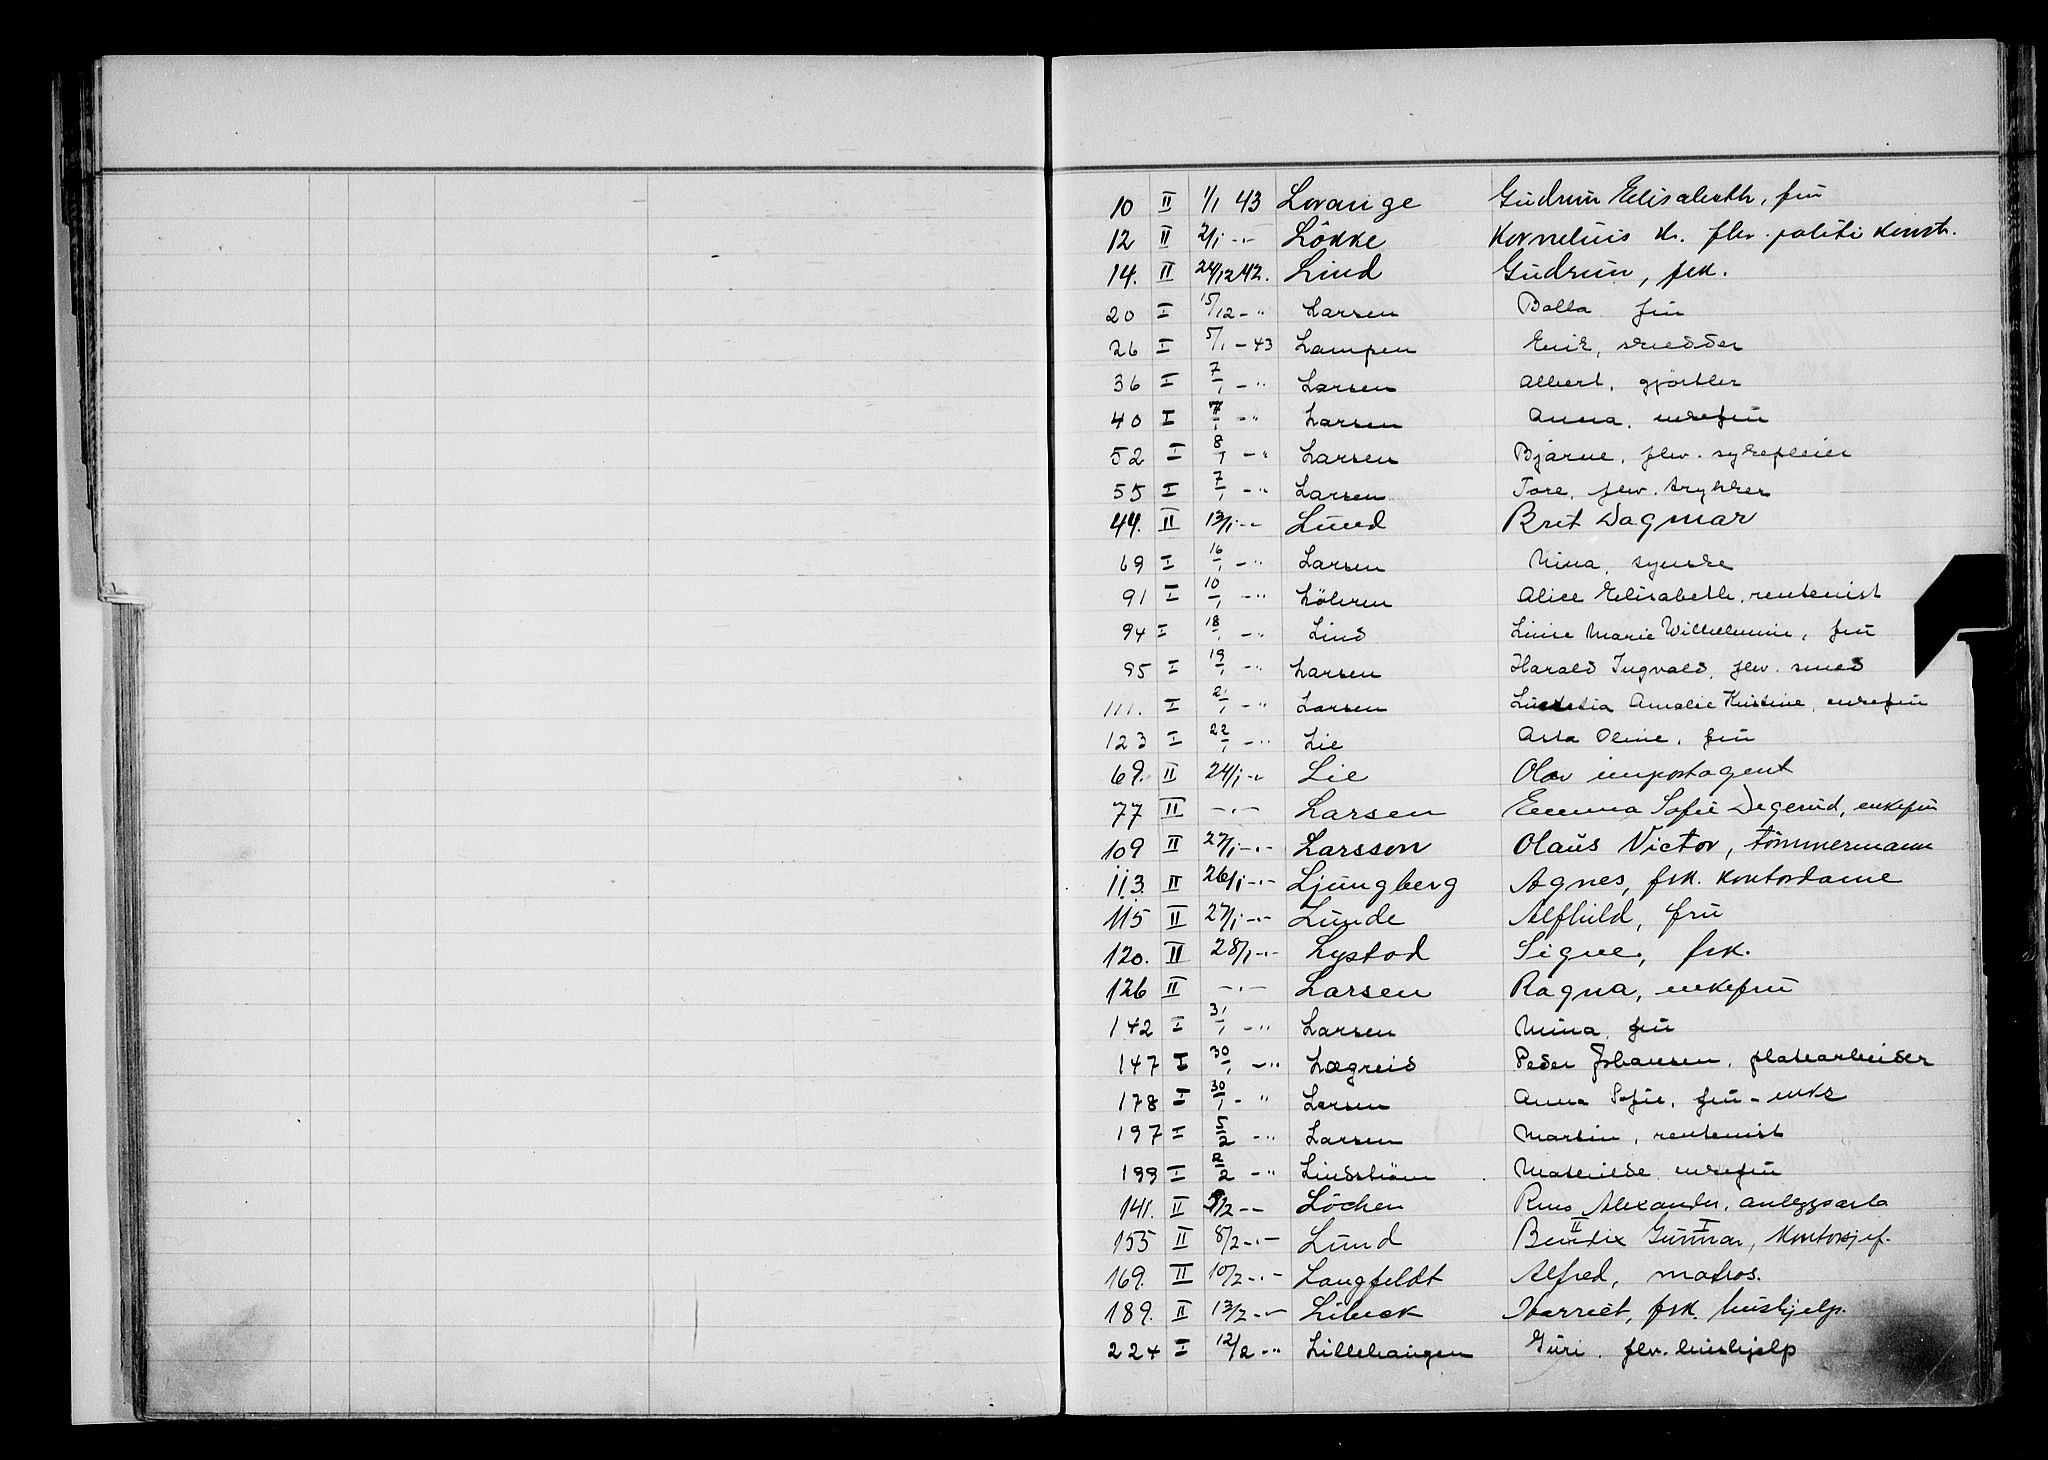 10 II 1/1 43 Lorange Gudrun Elisabeth, fru
12 II 2/1 -"- Lökke Kornelius Kr. flv. politi konst.
14. II 24/12 42. Lind Gudrun, frk.
20 I 15/12 -" Larsen Bolla fru
26 I 5/1 - 43 Lampen Erik, skredder
36 I 7/1 -" Larsen Albert, gjörtler
40 I 7/1 -" Larsen Anna, enkefru
52 I 8/1 -" Larsen Bjarne, flv. sykepleier
55 I 7/1 -" Larsen Tore, flv. trykker
44. II 13/1 -"- Lund Brit Dagmar
69 I 16/1 -" Larsen Nina, syerske
91 I 10/1 -" Löhren Alice Elisabeth, rentenist
94 I 18/1 -" Lind Marie Wilhelmine, fru
95 I 19/1 -" Larsen Harald Ingvald, flv. smed
111. I 21/1 -" Larsen Amalie Kristine, enkefru
123 I 22/1 -" Lie Asta Oline, fru
69. II 24/1 -"- Lie Olav importagent
77 II -"- Larsen Emma Sofie Degerud, enkefru
109 II 27/1 -"- Larsson Olaus Victor, tömmermann
113. II 26/1 -"- Ljungberg Agnes, frk. kontordame
115 II 27/1 -"- Lunde Alfhild, fru
120. II 28/1 -"- Lystad Signe, frk.
126 II -"- Larsen Ragna, enkefru
142 I 31/1 -" Larsen Mina fru
147 I 30/1 -" Lægreid Peder Johansen, platearbeider
178 I 30/1 -" Larsen Anna Sofie, fru - enke
197 I 5/2 -" Larsen Martin, rentenist
199 I 2/2 -" Lindström Mathilde enkefru
141. II /2 -"- Löchen Alexander, anleggsarb
155 II 8/2 -"- Lund Bendix II Gunnar I, kontorsjef.
169. II 10/2 -"- Langfeldt Alfred, matros.
189. II 13/2 -"- Libeck Harriet, frk. hushjelp.
224 I 12/2 -" Lillehaugen Guri, flv. hushjelp